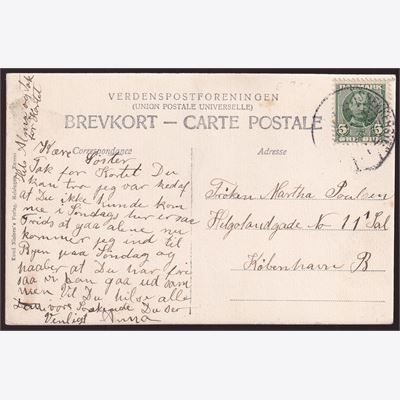 VERDENSPOSTFORENINGEN
(UNION POSTALE UNIVERSELLE)
BREVKORT – CARTE POSTALE
Correspondance
Adresse
DANMARK
5 5
ØRE ØRE
Kære Søster
Tak for Kortet Du
kan tro jeg var ked af
at Du ikke kunde kom
me i Søndags
at gaa alene nu
kommer jeg ind til
Byen paa Søndag og
haaber at Du har fri
saa vi kan gaa ud sam
men vil Du hilse alle
Du ser
Venligst Anna
Hils og Tak
for Kortet
Frøken Martha Poulsen
Helgolandgade No 11 1 Sal
København B